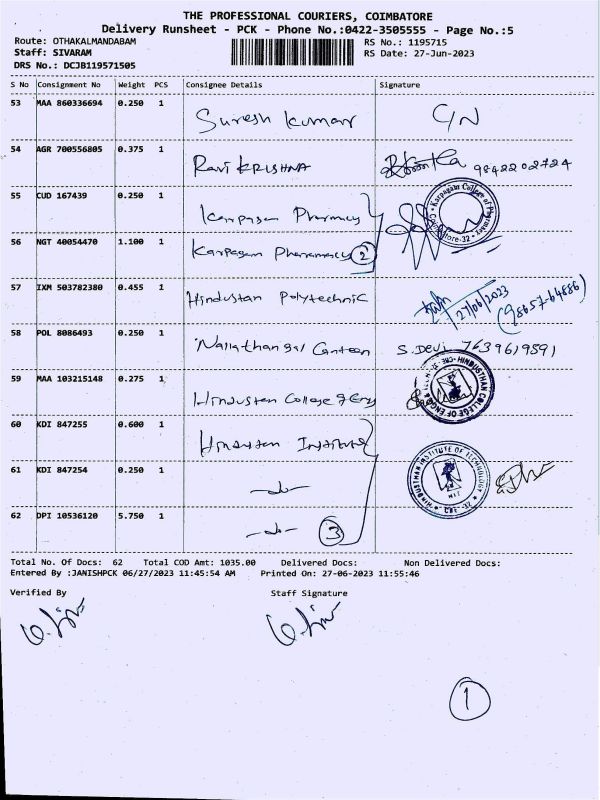 THE PROFESSIONAL COURIERS, COIMBATORE
Delivery Runsheet - PCK - Phone No.:0422-3505555 - Page No.:5
Route: OTHAKALMANDABAM
RS No.: 1195715
Staff: SIVARAM
RS Date: 27-Jun-2023
DRS No.: DCJB119571505
S No Consignment No Weight PCS Consignee Details Signature
53 MAA 860336694 0.250 1 Suresh Kumar C/N
54 AGR 700556805 0.375 1 Ravi KRISHNA 9842202724
55 CUD 167439 0.250 1 Karpagam Pharmacy
Karpagam College of Pharmacy Coimbatore-32
56 NGT 40054470 1.100 1 Karpagam Pharamacy 2
57 IXM 503782380 0.455 1 Hindustan Polytechnic 27/06/2023
58 POL 8086493 0.250 1 Nallathangal Canteen S. Devi 7639619591
59 MAA 103215148 0.275 1 Hindustan College of Eng
HINDUSTHAN COLLEGE OF
60 KDI 847255 0.600 1 Hindustan Institute
HINDUSTHAN INSTITUTE OF TECHNOLOGY CBE-32 HIT
61 KDI 847254 0.250 1 -do-
62 DPI 10536120 5.750 1 -do- 3
Total No. Of Docs: 62 Total COD Amt: 1035.00 Delivered Docs: Non Delivered Docs:
Entered By :JANISHPCK 06/27/2023 11:45:54 AM Printed On: 27-06-2023 11:55:46
Verified By Staff Signature
1